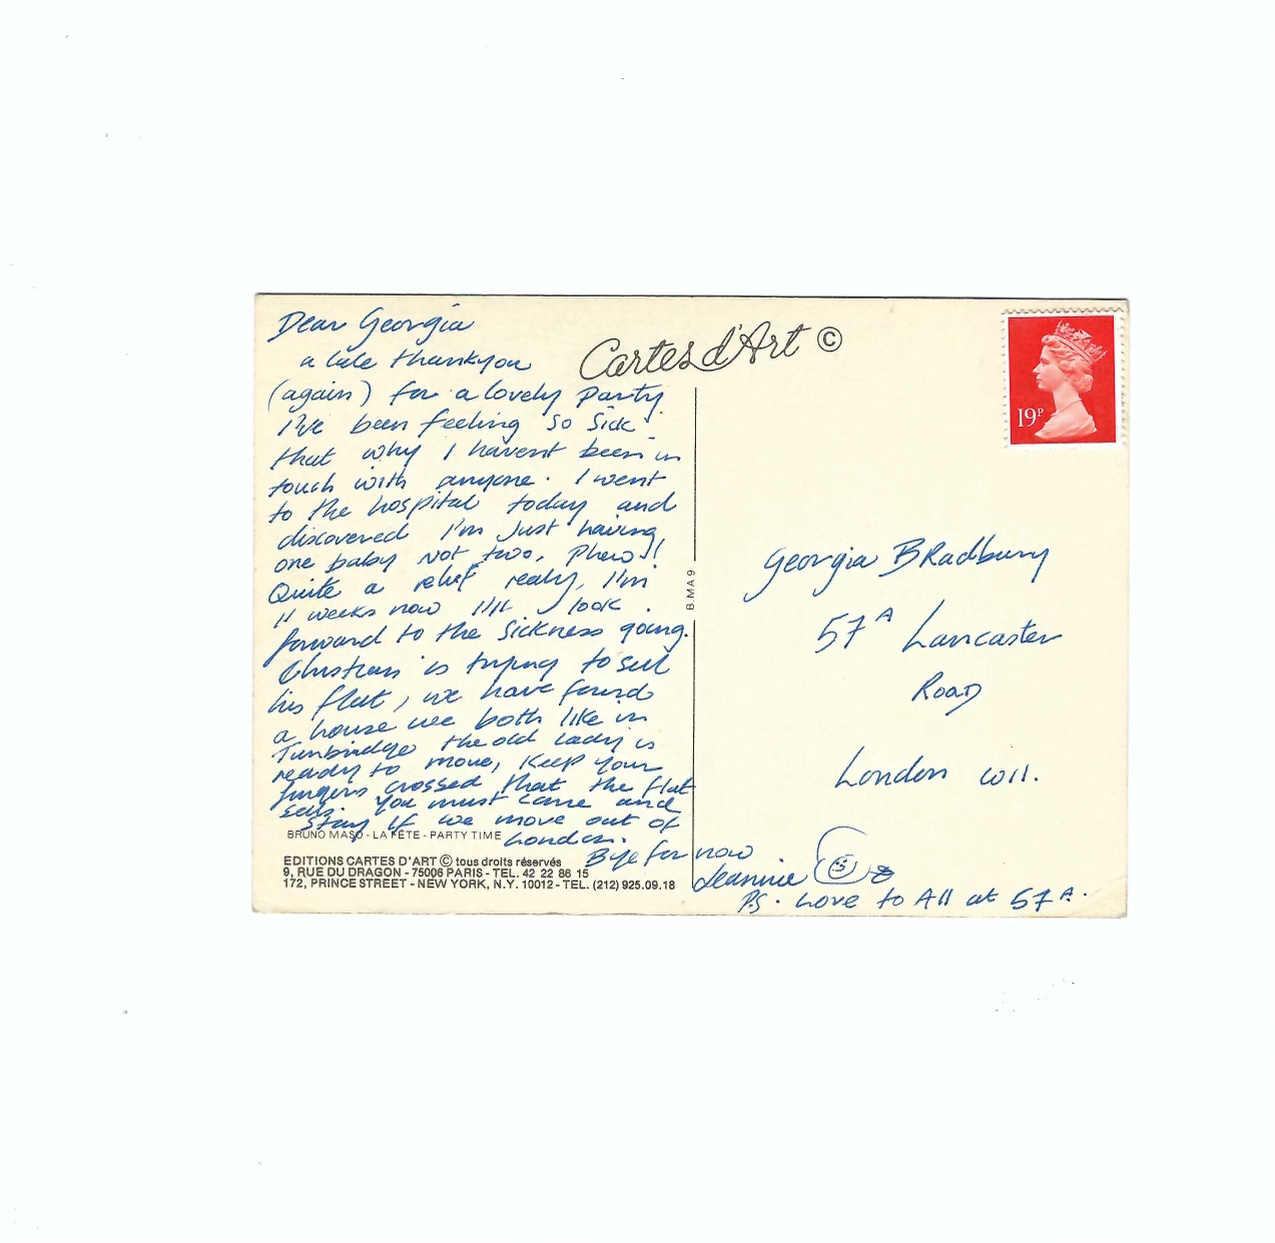 Dear Georgia
a late thankyou
(again) for a lovely party
I've been feeling so sick
that why I havent been in
touch with anyone. I went
to the hospital today and
discovered I'm Just having
one baby not two, Phew!!
Quite a relief really, I'm
11 weeks now I'll look
forward to the sickness going.
Christian is trying to sell
his flat, we have found
a house we both like in
Tunbridge the old lady is
ready to move, Keep your
fingers crossed that the flat
sells. You must come and
stay if we move out of
London.
Bye for now
Jeannie
P.S. Love to All at 57A.
Cartes d'Art ©
19P
Georgia BRadbury
57A Lancaster
Road
London W11.
B.MA 9
BRUNO MASO - LA FÊTE - PARTY TIME
EDITIONS CARTES D'ART © tous droits réservés
9, RUE DU DRAGON - 75006 PARIS - TEL. 42 22 86 15
172, PRINCE STREET - NEW YORK, N.Y. 10012 - TEL. (212) 925.09.18